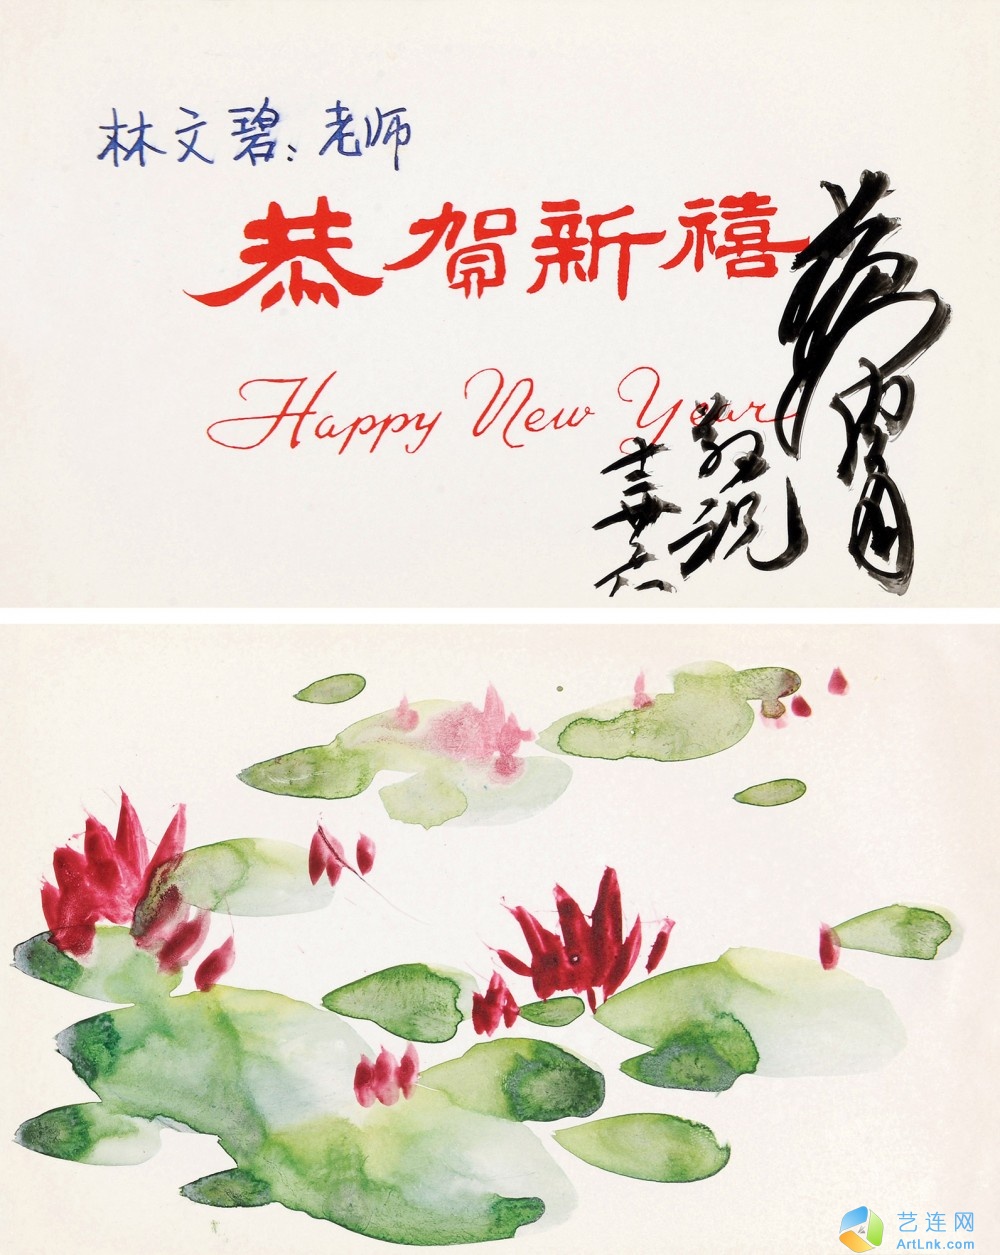 林文碧：老师
恭贺新禧
Happy New Year
黄胄
敬祝
艺连网
ArtLnk.com